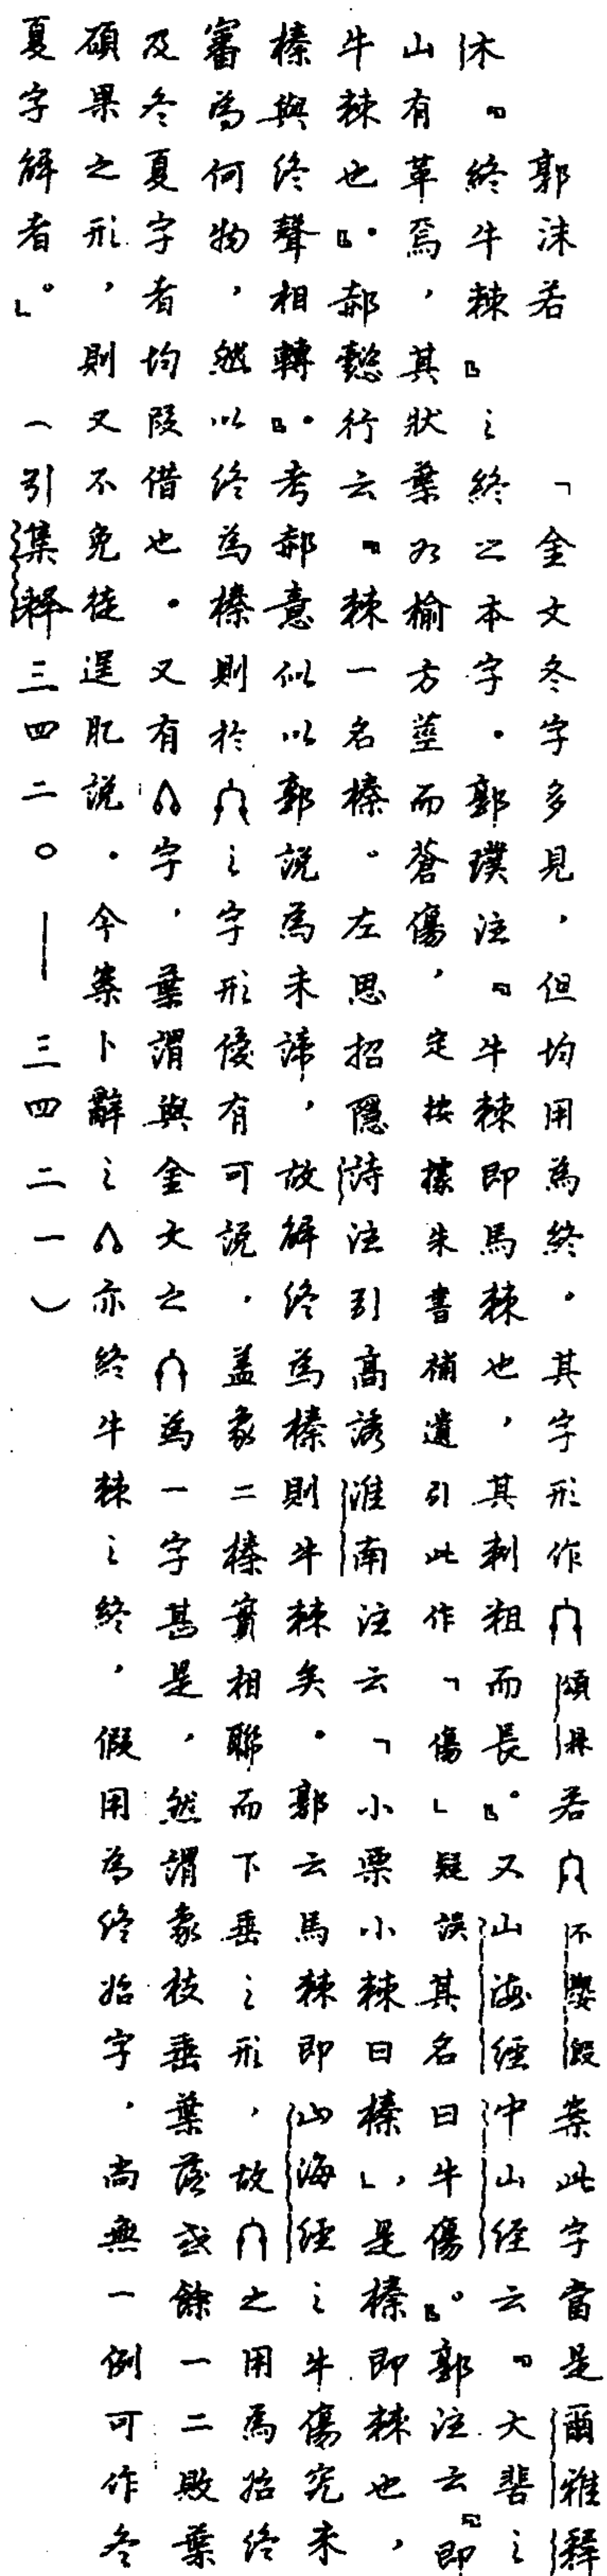 郭沫若
「金文冬字多見，但均用為終。其字形作𠔾頌鼎若𠔾不𡢁𣪘案此字當是爾雅釋
木『終牛棘』之終之本字．郭璞注『牛棘即馬棘也，其刺粗而長』。又山海經中山經云『大𩇯之
山有草焉，其狀葉如榆方莖而蒼傷，定按據朱書補遺引此作「傷」疑誤其名曰牛傷』。郭注云『即
牛棘也』。郝懿行云『棘一名榛。左思招隱詩注引高誘淮南注云「小栗小棘曰榛」，是榛即棘也，
榛與終聲相轉』。考郝意似以郭說為未諦，故解終為榛則牛棘矣．郭云馬棘即山海經之牛傷究未
審為何物，然以終為榛則於𠔾之字形優有可說．蓋象二榛實相聯而下垂之形，故𠔾之用為始終
及冬夏字者均叚借也．又有𠔾字，葉謂與金文之𠔾為一字甚是，然謂象枝垂葉落或餘一二敗葉
碩果之形，則又不免徒逞肊說．今案卜辭之𠔾亦終牛棘之終，假用為終始字，尚無一例可作冬
夏字解者。」（引集釋三四二〇——三四二一）